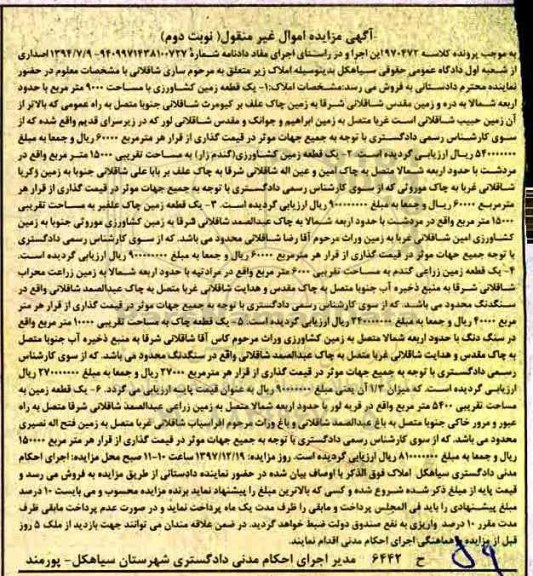 آگهی مزایده اموال غیر منقول( نوبت دوم)
به موجب پرونده کلاسه ۹۷۰۴۷۲ این اجرا و در راستای اجرای مفاد دادنامه شماره ۹۴۰۹۹۷۱۴۳۸۱۰۰۷۲۷-۱۳۹۴/۷/۹ اصداری
از شعبه اول دادگاه عمومی حقوقی سیاهکل بدینوسیله املاک زیر متعلق به مرحوم سازی شاقلانی با مشخصات معلوم در حضور
نماینده محترم دادستانی به فروش می رسد:مشخصات املاک:۱- یک قطعه زمین کشاورزی با مساحت ۹۰۰۰ متر مربع با حدود
اربعه شمالا به دره و زمین مقدس شاقلانی شرقا به زمین چاک علف بر کیومرث شاقلانی جنوبا متصل به راه عمومی که بالاتر از
آن زمین حبیب شاقلانی است غربا متصل به زمین ابراهیم و جوانک و مقدس شاقلانی لور که در زیرسرای قدیم واقع شده که از
سوی کارشناس رسمی دادگستری با توجه به جمیع جهات موثر در قیمت گذاری از قرار هر مترمربع ۶۰۰۰۰ ریال و جمعا به مبلغ
۵۴۰۰۰۰۰۰۰ ریال ارزیابی گردیده است ۲- یک قطعه زمین کشاورزی(گندم زار) به مساحت تقریبی ۱۵۰۰۰ متر مربع واقع در
مردشت با حدود اربعه شمالا متصل به چاک امین و عین اله شاقلانی شرقا به چاک علف بر باباعلی شاقلانی جنوبا به زمین وکریا
شاقلانی غربا به چاک موروثی که از سوی کارشناس رسمی دادگستری با توجه به جمیع جهات موثر در قیمت گذاری از قرار هر
مترمربع ۶۰۰۰۰ ریال و جمعا به مبلغ ۹۰۰۰۰۰۰۰۰ ریال ارزیابی گردیده است. ۳- یک قطعه زمین چاک علفبر به مساحت تقریبی
۱۵۰۰۰ متر مربع واقع در مردشت با حدود اربعه شمالا به چاک عبدالصمد شاقلانی شرقا به زمین کشاورزی موروثی جنوبا به زمین
کشاورزی امین شاقلانی غربا به زمین وراث مرحوم آقا رضا شاقلانی محدود می باشد. که از سوی کارشناس رسمی دادگستری
با توجه جمیع جهات موثر در قیمت گذاری از قرار هر مترمربع ۶۰۰۰۰ ریال و جمعا به مبلغ ۹۰۰۰۰۰۰۰۰ ریال ارزیابی گردیده است.
۴- یک قطعه زمین زراعی گندم به مساحت تقریبی ۶۰۰۰ متر مربع واقع در مرادتپه با حدود اربعه شمالا به زمین زراعت محراب
شاقلانی شرقا به منبع ذخیره آب جنوبا متصل به چاک مقدس و هدایت شاقلانی غربا متصل به چاک عبدالصمد شاقلانی واقع در
سنگدنگ محدود می باشد: که از سوی کارشناس رسمی دادگستری با توجه به جمیع جهات موثر در قیمت گذاری از قرار هر متر
مربع ۴۰۰۰۰ ریال و جمعا به مبلغ ۲۴۰۰۰۰۰۰۰ ریال ارزیابی گردیده است. ۵- یک قطعه چاک به مساحت تقریبی ۱۰۰۰۰ متر مربع واقع
در سنگ دنگ با حدود اربعه شمالا متصل به زمین کشاورزی وراث مرحوم کاس آقا شاقلانی شرقا به منبع ذخیره آب جنوبا متصل
به چاک مقدس و هدایت شاقلانی غربا متصل به چاک عبدالصمد شاقلانی واقع در سنگدنگ محدود می باشد. که از سوی کارشناس
رسمی دادگستری با توجه به جمیع جهات موثر در قیمت گذاری از قرار هر مترمربع ۲۷۰۰۰ ریال و جمعا به مبلغ ۲۷۰۰۰۰۰۰۰ ریال
ارزیابی گردیده است. که میزان ۱/۳ آن یعنی مبلغ ۹۰۰۰۰۰۰۰ ریال به عنوان قیمت پایه ارزیابی می گردد. ۶- یک قطعه زمین به
مساحت تقریبی ۵۴۰۰ متر مربع واقع در قریه لور با حدود اربعه شمالا متصل به زمین زراعی عبدالصمد شاقلانی شرقا متصل به راه
عبور و مرور خاکی جنوبا متصل به باغ عبدالصمد شاقلانی و باغ وراث مرحوم افراسیاب شاقلانی غربا متصل به زمین فتح اله نصیری
محدود می باشد. که از سوی کارشناس رسمی دادگستری با توجه به جمیع جهات موثر در قیمت گذاری از قرار هر متر مربع ۱۵۰۰۰۰
ریال و جمعا به مبلغ ۸۱۰۰۰۰۰۰۰ ریال ارزیابی گردیده است. روز مزایده: ۱۳۹۷/۱۲/۱۹ ساعت ۱۰-۱۱ صبح محل مزایده: اجرای احکام
مدنی دادگستری سیاهکل املاک فوق الذکر با اوصاف بیان شده در حضور نماینده دادستانی از طریق مزایده به فروش می رسد و
قیمت پایه از مبلغ ذکر شده شروع شده و کسی که بالاترین مبلغ را پیشنهاد نماید برنده مزایده محسوب و می بایست ۱۰ درصد
مبلغ پیشنهادی را باید فی المجلس پرداخت و مابقی را ظرف مدت یک ماه پرداخت نماید و در صورت عدم پرداخت مابقی ظرف
مدت مقرر ۱۰ درصد واریزی به نفع صندوق دولت ضبط خواهد گردید. در ضمن علاقه مندان می توانند جهت بازدید از ملک ۵ روز
قبل از مزایده با هماهنگی اجرای احکام مدنی اقدام نمایند.
ح ۶۴۴۲ مدیر اجرای احکام مدنی دادگستری شهرستان سیاهکل- پورمند